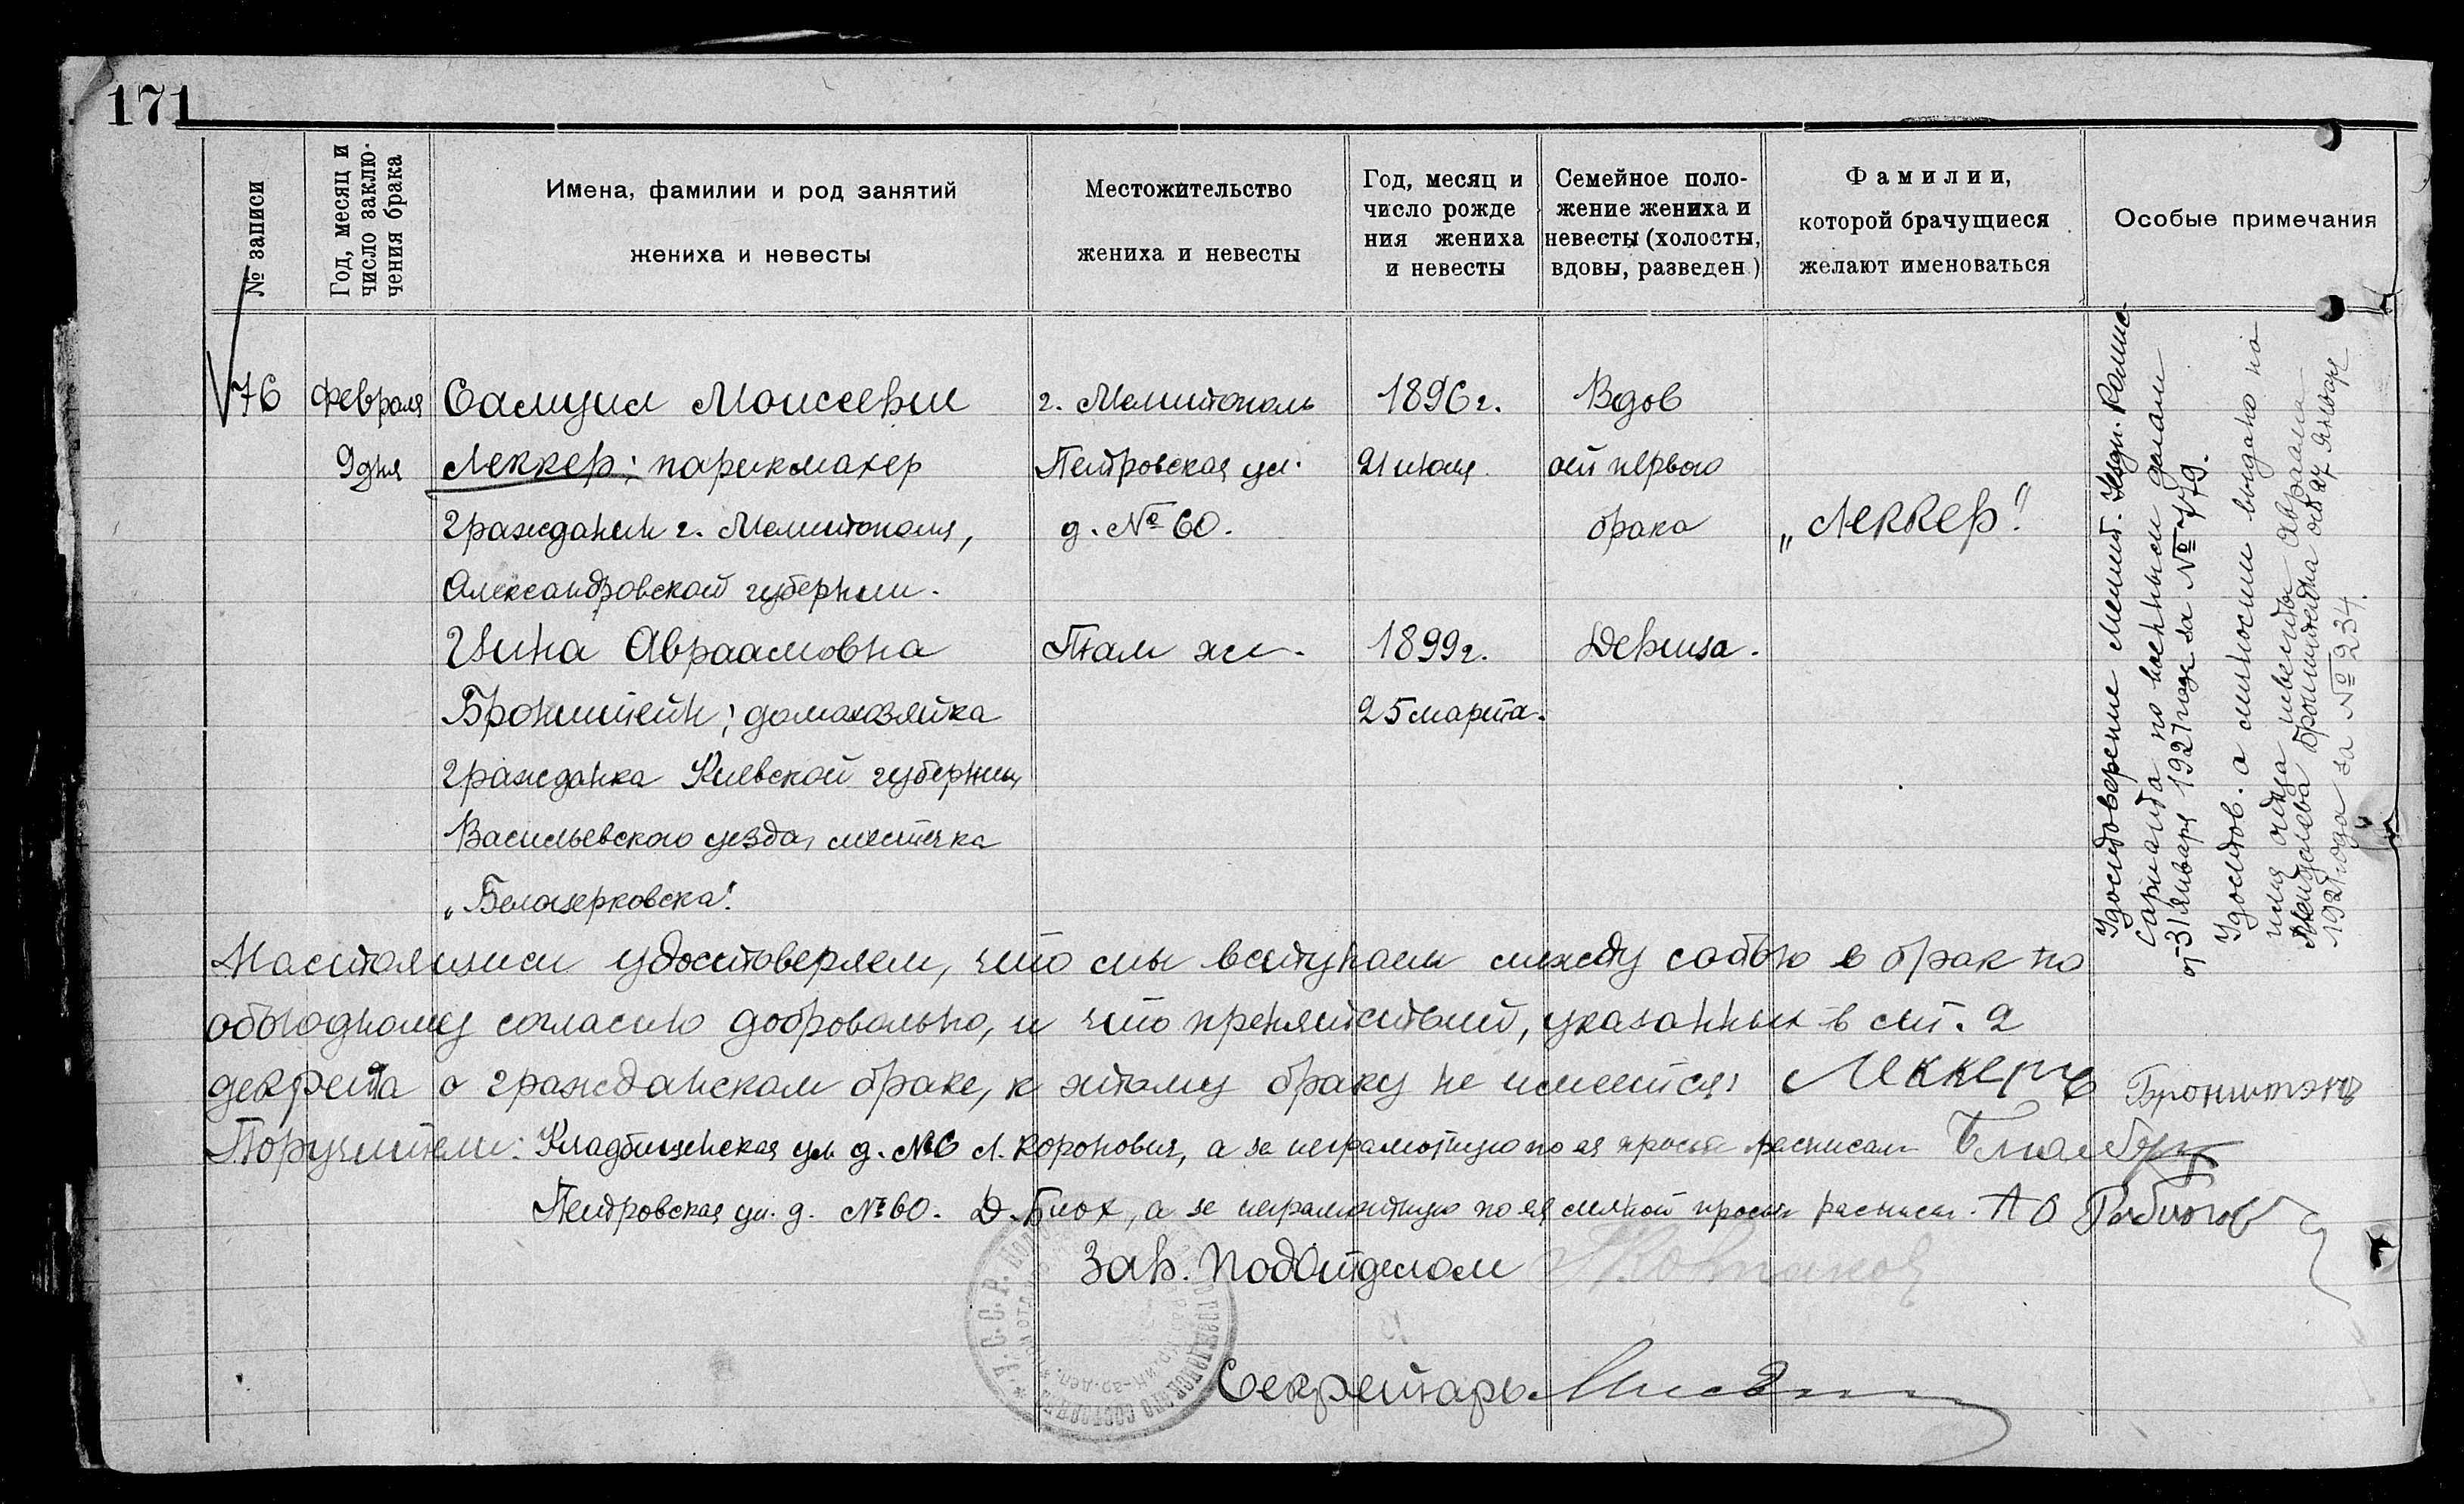 171
№ записи
Год, месяц и
число заклю-
чения брака
Имена, фамилии и род занятий
жениха и невесты
Местожительство
жениха и невесты
Год, месяц и
число рожде
ния жениха
и невесты
Семейное поло-
жение жениха и
невесты (холосты,
вдовы, разведен.)
Фамилии,
которой брачущиеся
желают именоваться
Особые примечания
76
Февраля
9 дня
Самуил Моисеевич
Леккер; парикмахер
гражданин г. Мелитополя,
Александровской губернии.
г. Мелитополь
Петровская ул.
д. № 60.
1896 г.
21 июля
Вдов
ой первого
брака
„Леккер"
Цина Авраамовна
Бронштейн; домохозяйка
гражданка Киевской губернии,
Васильевского уезда, местечка
„Белоцерковска".
Там же.
1899 г.
25 марта.
Девица.
Удостоверение Мелит. Уездн. Комис
сариата по военным делам
от 31 января 1921 года за № 779.
Удостов. о личности выдано на
имя отца невесты Авраама
Бронштейна от 27 января
1921 года за № 234.
Настоящим удостоверяем, что мы вступаем между собою в брак по
обоюдному согласию добровольно, и что препятствий, указанных в ст. 2
декрета о гражданском браке, к этому браку не имеется: Леккеръ Бронштэнъ
Поручители: Кладбищенская ул. д. № 6 Л. Коронович, а за неграмотную по ея просьбе расписал
Петровская ул. д. № 60. Д. Блох, а за неграмотную по ея личной просьбе расписал. А
Зав. Подотделом
Секретарь
У.С.С.Р.
гражданского состояния